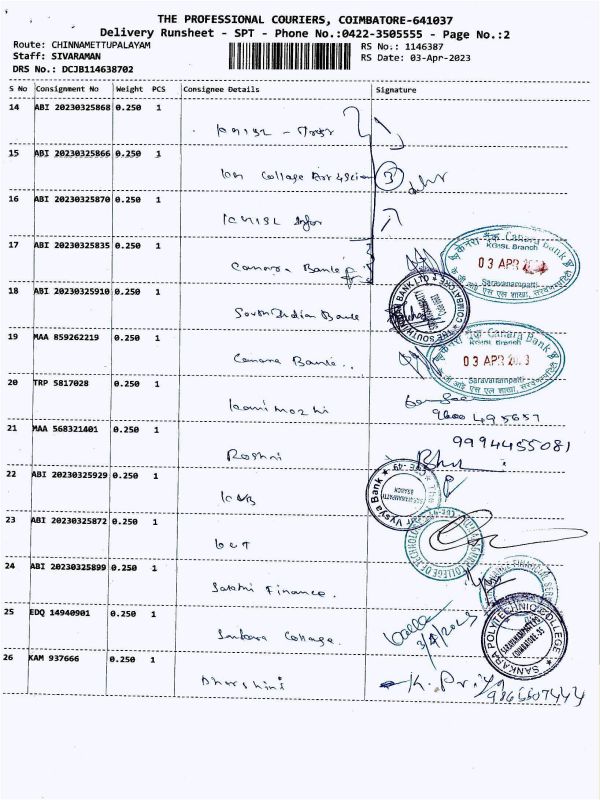 THE PROFESSIONAL COURIERS, COIMBATORE-641037
Delivery Runsheet - SPT - Phone No.:0422-3505555 - Page No.:2
Route: CHINNAMETTUPALAYAM
RS No.: 1146387
Staff: SIVARAMAN
RS Date: 03-Apr-2023
DRS No.: DCJB114638702
S No Consignment No Weight PCS Consignee Details Signature
14 ABI 20230325868 0.250 1
KGISL -
15 ABI 20230325866 0.250 1
Collage Art &
3
16 ABI 20230325870 0.250 1
KGISL Infor
17 ABI 20230325835 0.250 1
Canara Bank
केनरा बैंक Canara Bank
KGISL Branch
03 APR
Saravanampatti
18 ABI 20230325910 0.250 1
South Indian Bank
THE SOUTH INDIAN BANK LTD
19 MAA 859262219 0.250 1
Canara Bank..
केनरा बैंक Canara Bank
KGISL Branch
03 APR 2023
Saravanampatti
20 TRP 5817028 0.250 1
Kanimozhi
9600495657
21 MAA 568321401 0.250 1
Roshni
9994455081
22 ABI 20230325929 0.250 1
KVB
Vysya Bank
23 ABI 20230325872 0.250 1
24 ABI 20230325899 0.250 1
Sakthi Finance.
25 EDQ 14940901 0.250 1
Sankara Collage.
3/4/2023
SANKARA POLYTECHNIC COLLEGE
SARAVANAMPATTI PO
COIMBATORE-35
26 KAM 937666 0.250 1
Dharshini
K. Priya
9866607444